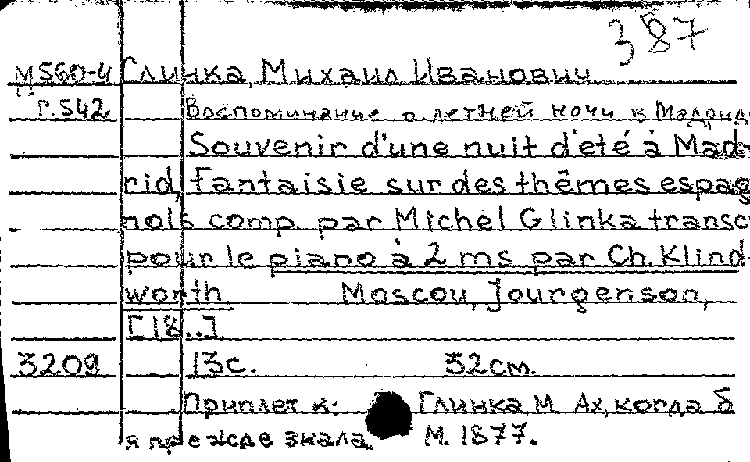 387
М560-4 Глинка, Михаил Иванович
Г.542 Воспоминание о летней ночи в Мадрид
Souvenir d'une nuit d'eté à Mad-
rid, Fantaisie sur des thêmes espag
nols comp. par Michel Glinka transc
pour le piano à 2 ms par Ch. Klind-
worth. Moscou, Jourgenson,
[18..]
3209 13с. 32см.
Приплет к: Глинка М. Ах, когда б
я прежде знала. М. 1877.